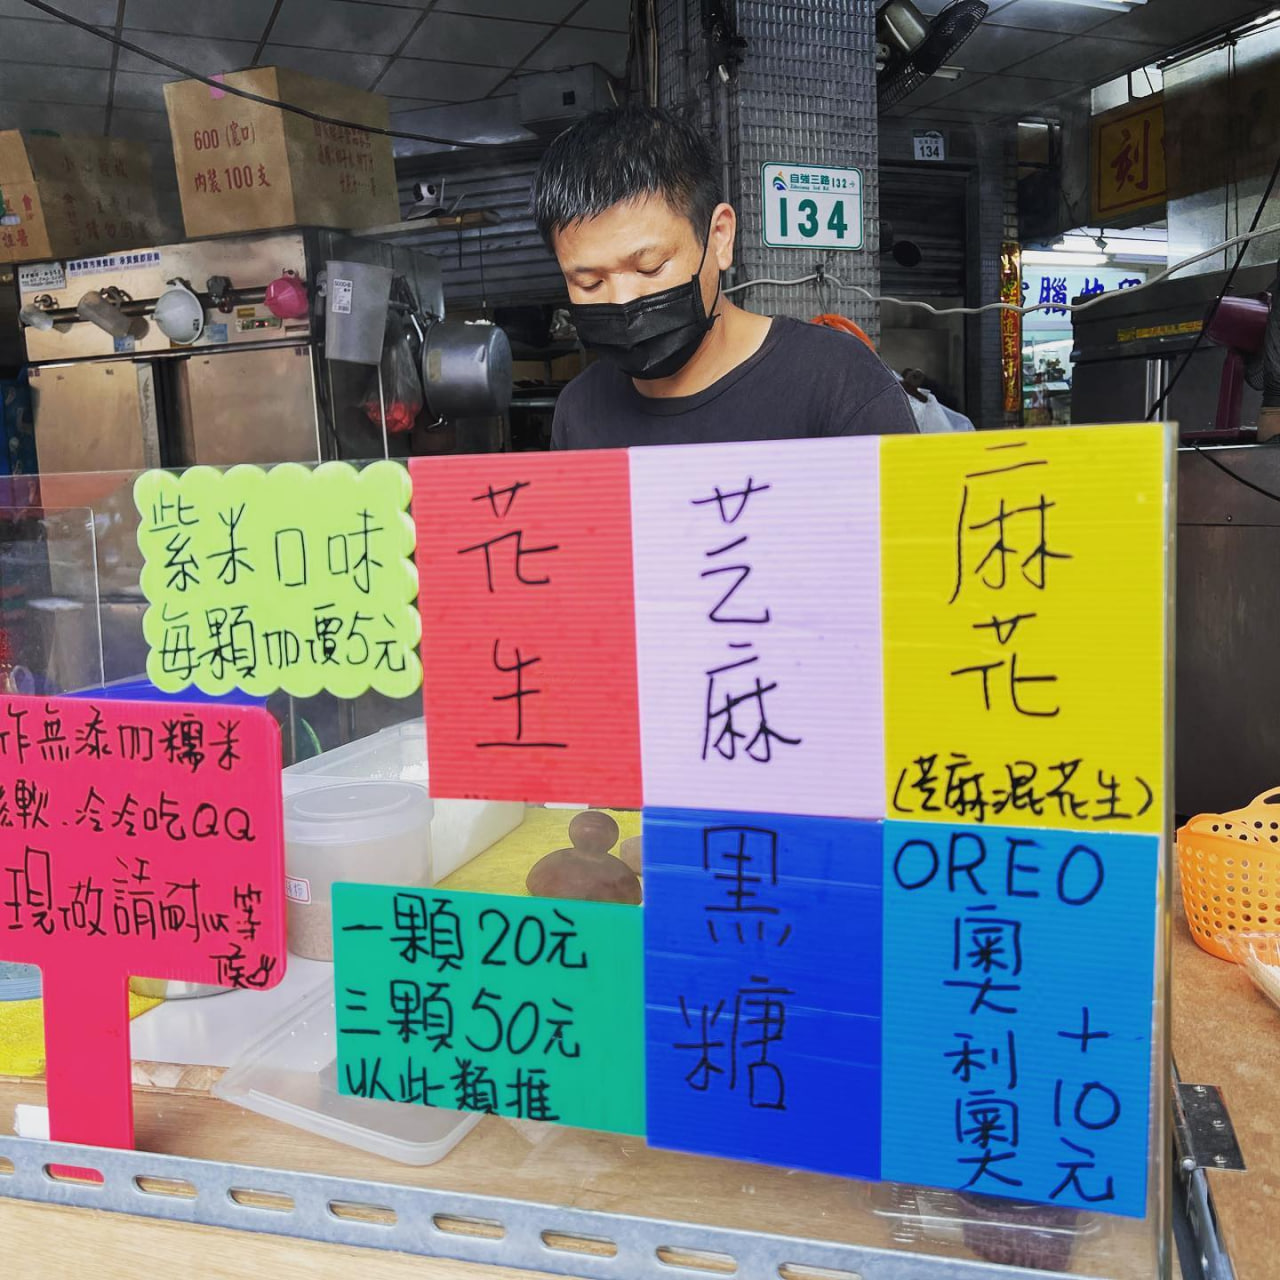 600 (寬口)
內裝100支
自強三路 132
134
134
刻
腦
紫米口味
每顆加價5元
花生
芝麻
麻花
(芝麻混花生)
作無添加糯米
軟.冷冷吃QQ
現做請耐心等
候
一顆20元
三顆50元
以此類推
黑糖
OREO
奧利奧
+10元